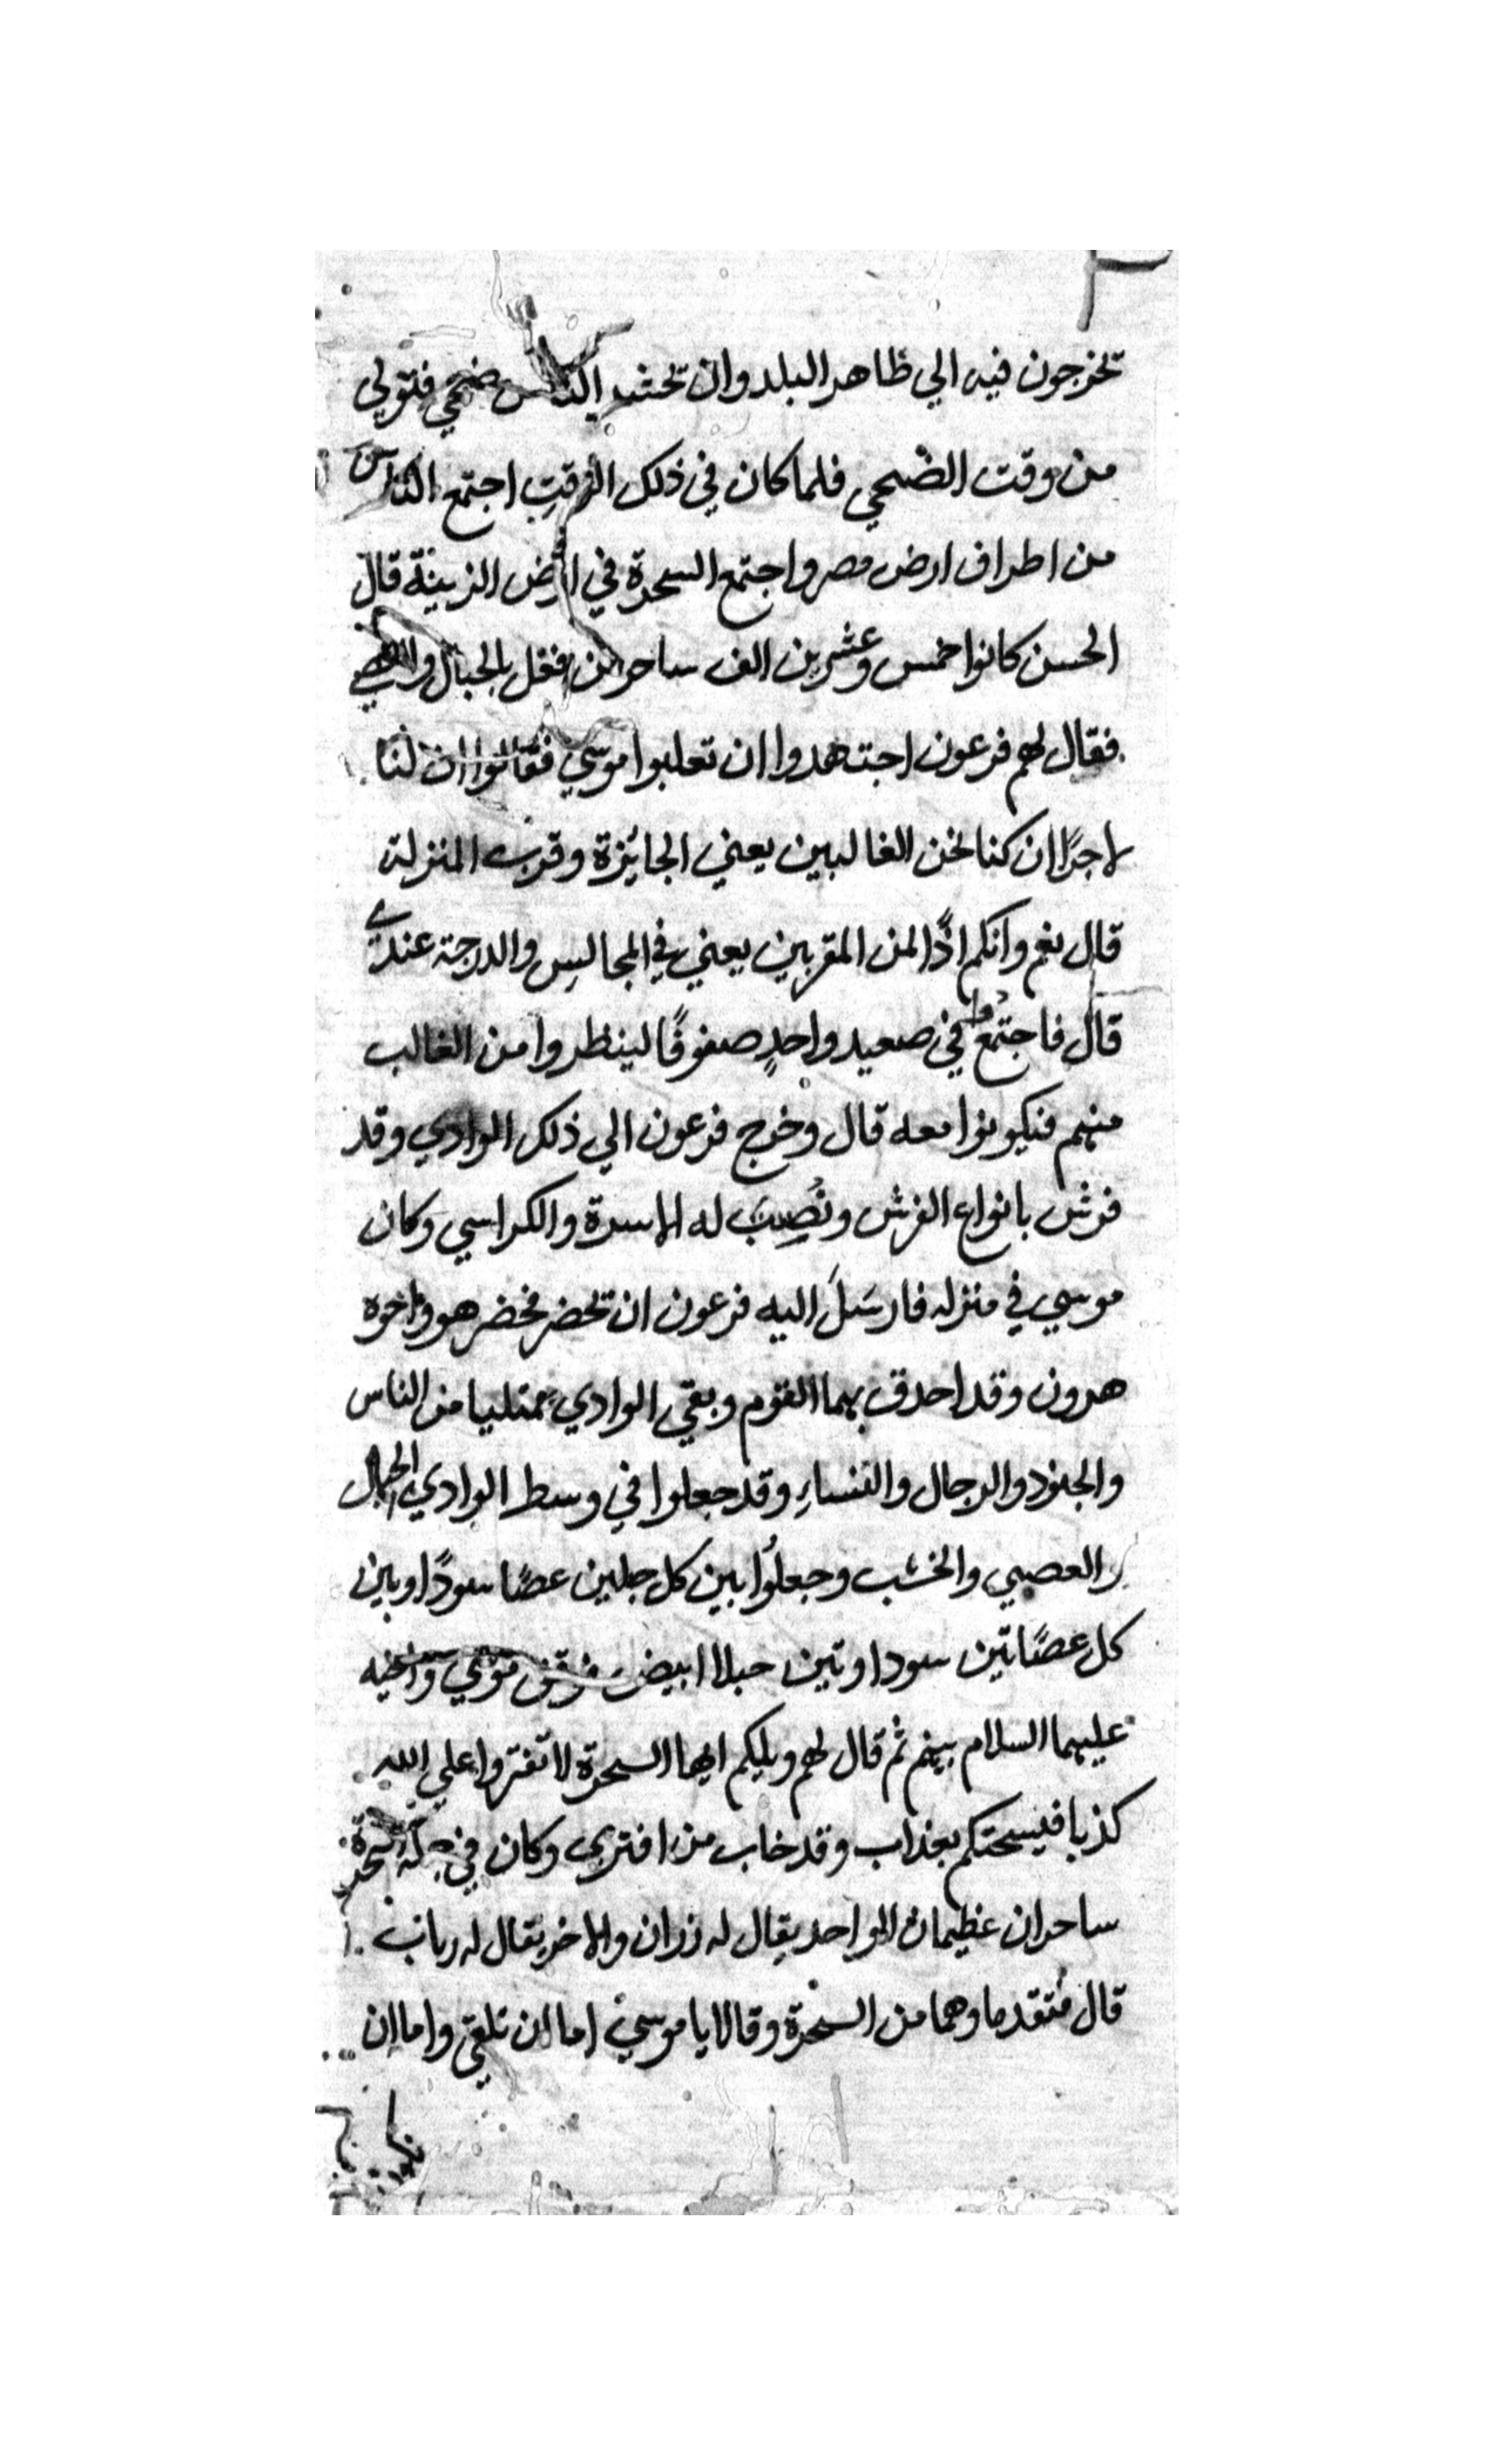 تخرجون فيه الي ظاهر البلد وان تحشر الناس ضحي فتولي
من وقت الضحي فلما كان في ذلك الوقت اجتمع الناس
من اطراف ارض مصر واجتمع السحرة في ارض الزينة قال
الحسن كانوا خمس وعشرين الف ساحر بالحبال
فقال لهم فرعون اجتهدوا ان تعلبوا موسي فقالوا ان لنا
لاجرًا ان كنا نحن الغالبين يعني الجائزة وقرب المنزلة
قال نعم وانكم اذًا لمن المقربين يعني في المجالس والدرجة عندي
قال فاجتمعوا في صعيد واحدٍ صفوفًا لينظروا من الغالب
منهم فيكونوا معه قال وخرج فرعون الي ذلك الوادي وقد
فرش بانواع الفرش ونُصِبَ له الاسرة والكراسي وكان
موسي في منزله فارسَلَ اليه فرعون ان تحضر فحضر هو واخوه
هرون وقد احدق بهما القوم وبقي الوادي ممتليا من الناس
والجنود والرجال والنساءِ وقد جعلوا في وسط الوادي الحبال
والعصي والخشب وجعلُوا بين كل حبلين عصًا سودًا وبين
كل عصًاتين سوداوتين حبلا ابيض فوقف موسي واخيه
عليهما السلام بينهم ثم قال لهم ويليكم ايها السحرة لا تفتروا علي الله
كذبا فيسحتكم بعذاب وقد خاب من افتري وكان في جملة السحرة
ساحران عظيمان الواحد يقال له زران والاخر يقال له ربان
قال فتقدما وهما من السحرة وقالا يا موسي اما ان تلقي واما ان